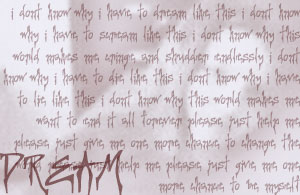 i dont know why i have to dream like this i dont know
why i have to scream like this i dont know why this
world makes me cringe and shudder endlessly i dont
know why i have to die like this i dont know why i have
to lie like this i dont know why this world makes me
want to end it all forever please just help me
please just give me one more chance to change the
help me please just give me one
more chance to be myself
DREAM